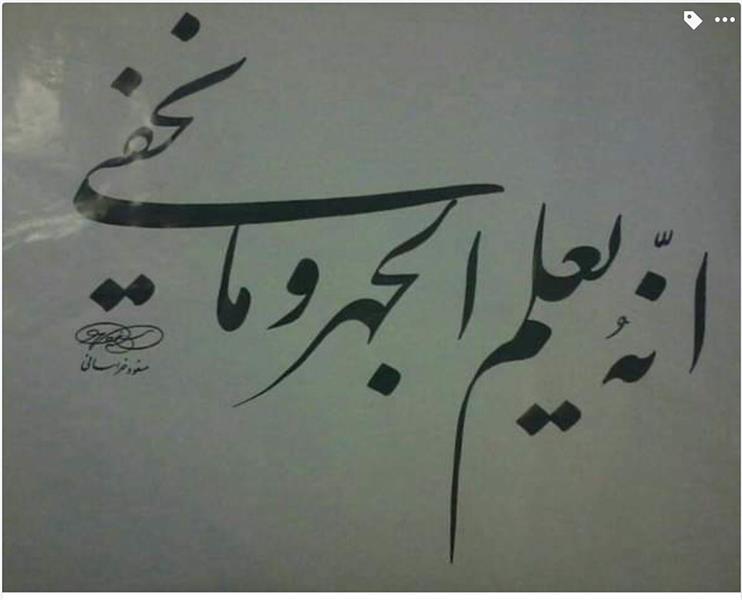 انّهُ يعلم الجهر وما يخفى
مسعود خراسانی